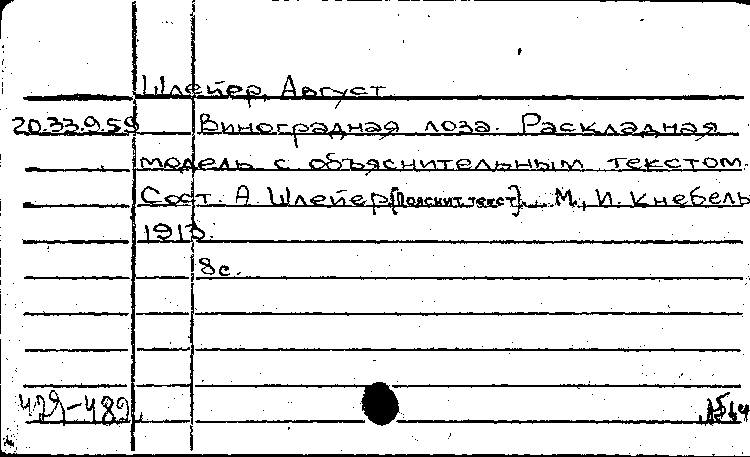 Шлейер, Август
20.33.9.59 Виноградная лоза. Раскладная
модель с объяснительным текстом.
Сост. А. Шлейер [Пояснит. текст]. М., И. Кнебель
1913.
8с.